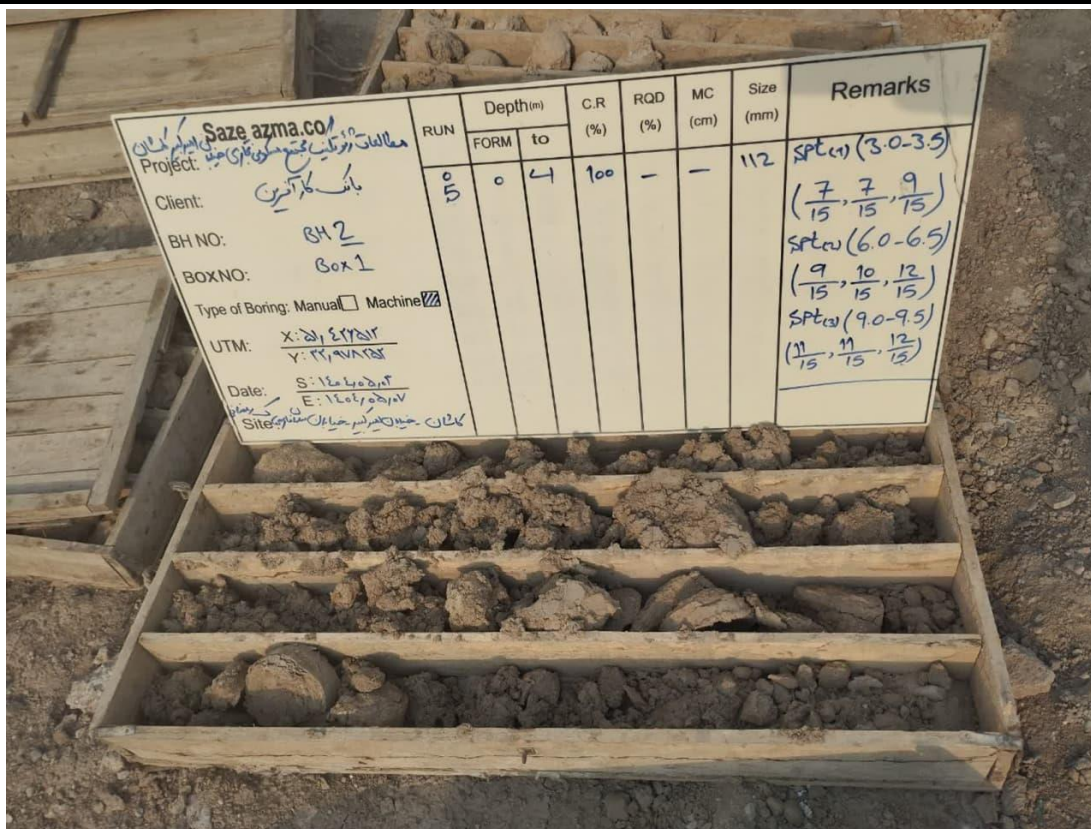 Saze azma.co
Project: مطالعات ژئوتکنیک مجتمع مسکونی تجاری خیابان امیرکبیر کاشان
Client: بانک کارآفرین
BH NO: BH 2
BOX NO: Box 1
Type of Boring: Manual Machine
UTM: X: ۵۱,۴۲۲۵۱۲
Y: ۳۳,۹۷۸۲۵۲
Date: S: ۱۴۰۴,۰۵,۰۲
E: ۱۴۰۴,۰۵,۰۷
Site: کاشان - خیابان امیرکبیر - خیابان
RUN
Depth(m)
FORM to
C.R (%)
RQD (%)
MC (cm)
Size (mm)
Remarks
0 4 100 - - 112
spt(1) (3.0-3.5)
(7/15, 7/15, 9/15)
spt(2) (6.0-6.5)
(9/15, 10/15, 12/15)
spt(3) (9.0-9.5)
(11/15, 11/15, 12/15)